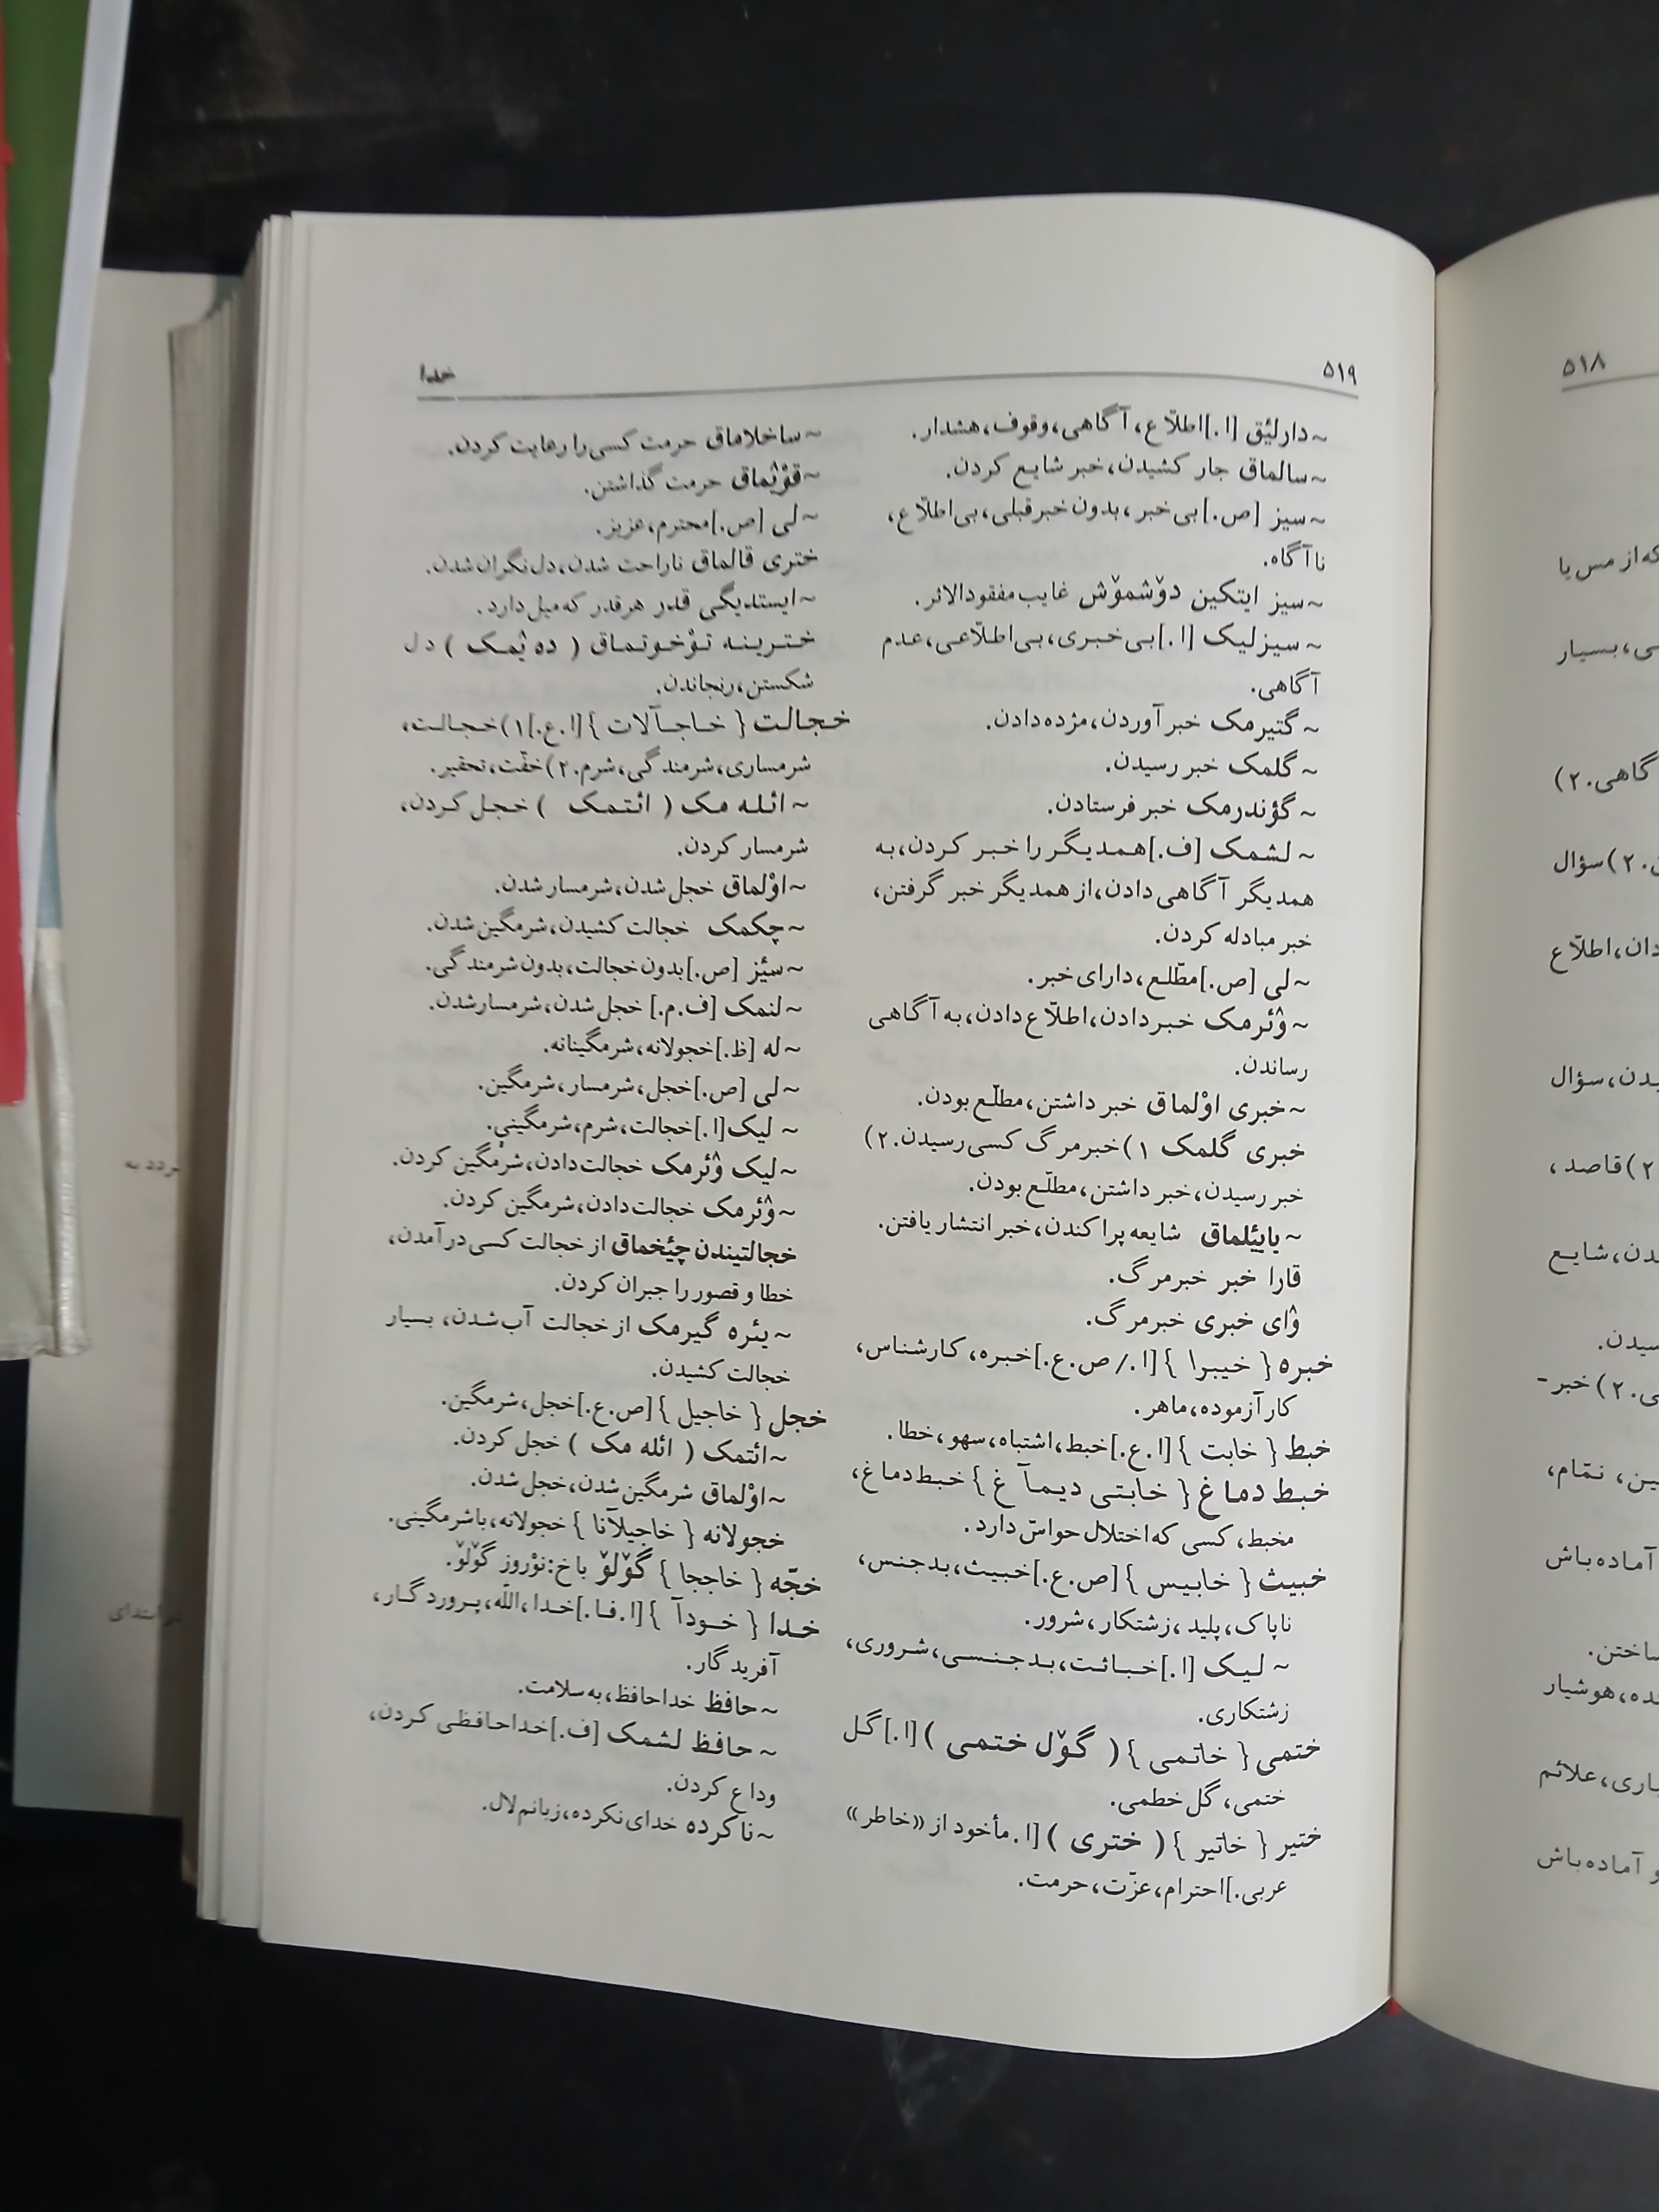 ۵۱۹
خدا
~دارلیٛق [ا.]اطلّاع، آگاهی،وقوف،هشدار.
~سالماق جار کشیدن،خبر شایع کردن.
~سیز [ص.]بی‌خبر،بدون خبرقبلی،بی‌اطلّاع،
ناآگاه.
~سیز ایتکین دوٚشموٚش غایب مفقودالاثر.
~سیزلیک [ا.]بی‌خبری،بی‌اطلّاعی،عدم
آگاهی.
~گتیرمک خبرآوردن،مژده‌دادن.
~گلمک خبر رسیدن.
~گؤندرمک خبر فرستادن.
~لشمک [ف.]همدیگر را خبر کردن،به
همدیگر آگاهی دادن،از همدیگر خبر گرفتن،
خبر مبادله کردن.
~لی [ص.]مطّلع،دارای خبر.
~وٛئرمک خبردادن،اطلّاع دادن،به آگاهی
رساندن.
~خبری اوْلماق خبر داشتن،مطلّع بودن.
خبری گلمک ۱)خبر مرگ کسی رسیدن.۲)
خبر رسیدن،خبر داشتن،مطلّع بودن.
~یاییٛلماق شایعه پراکندن،خبر انتشار یافتن.
قارا خبر خبرمرگ.
وٛای خبری خبرمرگ.
خبره { خیبرا }[ا./ص.ع.]خبره، کارشناس،
کارآزموده،ماهر.
خبط { خابت }[ا.ع.]خبط،اشتباه،سهو،خطا.
خبط دماغ { خابتی دیمآغ }خبط دماغ،
مخبط، کسی که اختلال حواسّ دارد.
خبیث { خابیس }[ص.ع.]خبیث،بدجنس،
ناپاک،پلید،زشتکار،شرور.
~لیک [ا.]خباثت،بدجنسی،شروری،
زشتکاری.
ختمی { خاتمی }( گوٚل ختمی )[ا.]گل
ختمی، گل خطمی.
ختیر { خاتیر }( ختری )[ا.مأخود از «خاطر»
عربی.]احترام،عزّت،حرمت.
~ساخلاماق حرمت کسی را رعایت کردن.
~قوْیٛماق حرمت گذاشتن.
~لی [ص.]محترم،عزیز.
ختری قالماق ناراحت شدن،دل نگران شدن.
~ایستدیگی قدر هرقدر که میل دارد.
خترینه توْخونماق ( ده یٛمک ) دل
شکستن،رنجاندن.
خجالت { خاجآلات }[ا.ع.]۱)خجالت،
شرمساری،شرمندگی،شرم.۲)خفّت،تحقیر.
~ائله مک ( ائتمک ) خجل کردن،
شرمسار کردن.
~اوْلماق خجل شدن،شرمسار شدن.
~چکمک خجالت کشیدن،شرمگین شدن.
~سیٛز [ص.]بدون خجالت،بدون شرمندگی.
~لنمک [ف.م.] خجل شدن،شرمسارشدن.
~له [ظ.]خجولانه،شرمگینانه.
~لی [ص.]خجل،شرمسار،شرمگین.
~لیک[ا.]خجالت،شرم،شرمگینی.
~لیک وٛئرمک خجالت دادن،شرمگین کردن.
~وٛئرمک خجالت دادن،شرمگین کردن.
خجالتیندن چیٛخماق از خجالت کسی درآمدن،
خطا و قصور را جبران کردن.
~یئره گیرمک از خجالت آب شدن، بسیار
خجالت کشیدن.
خجل { خاجیل }[ص.ع.]خجل،شرمگین.
~ائتمک ( ائله مک ) خجل کردن.
~اوْلماق شرمگین شدن،خجل شدن.
خجولانه { خاجیلآنا }خجولانه،باشرمگینی.
خجّه { خاججا } گوٚلوٚ باخ:نوْروز گوٚلوٚ.
خدا { خودآ }[ا.فا.]خدا،اللّه،پروردگار،
آفریدگار.
~حافظ خداحافظ،به سلامت.
~حافظ لشمک [ف.]خداحافظی کردن،
وداع کردن.
~ناکرده خدای نکرده،زبانم لال.
۵۱۸
که از مس یا
ی،بسیار
گاهی.۲)
.۲)سؤال
دان،اطلّاع
یدن،سؤال
۲)قاصد،
دن،شایع
سیدن.
ی.۲)خبر-
ین، نمّام،
آماده‌باش
ساختن.
ده،هوشیار
یاری،علائم
و آماده‌باش